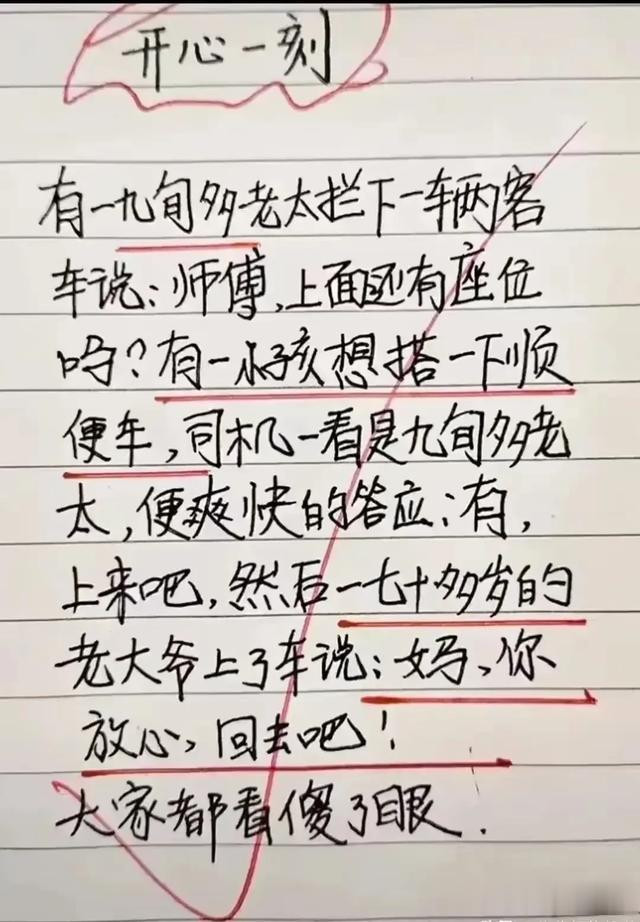 开心一刻
有一九旬多老太拦下一车两客
车说:师傅,上面还有座位
吗?有一小孩想搭一下顺
便车,司机一看是九旬多老
太,便爽快的答应:有,
上来吧,然后一七十多岁的
老大爷上了车说:妈、你
放心、回去吧!
大家都看傻了眼.